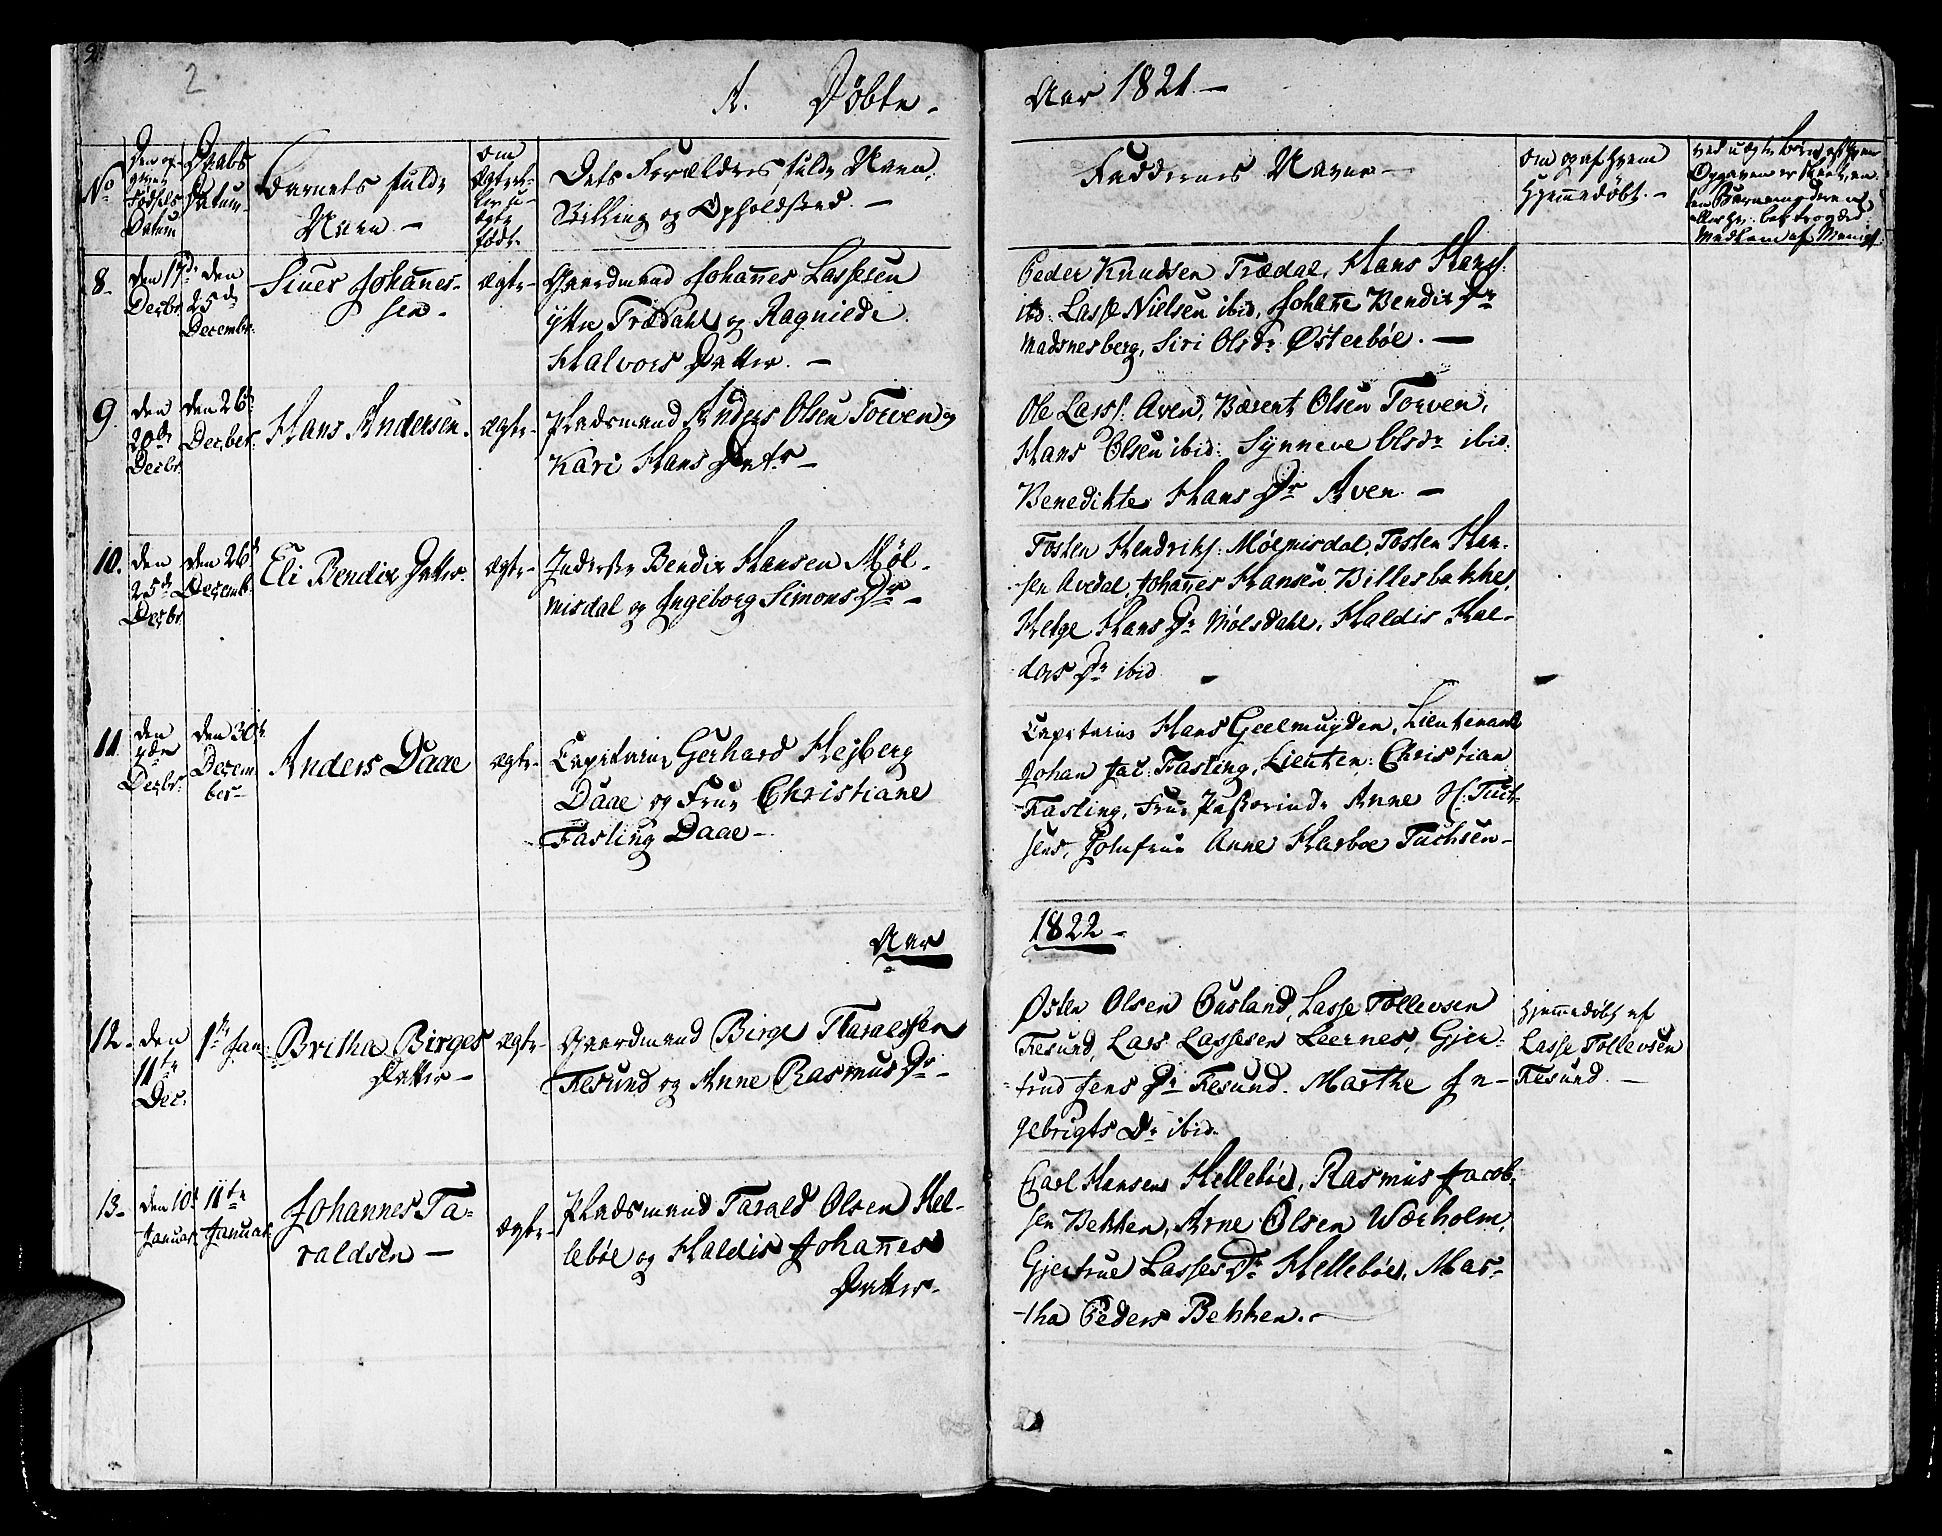 2
A. Døbte.
Aar 1821.—
No
Den opgivne Fødsels Datum
Daabs Datum.
Barnets fulde Navn.—
Om Ægte eller uægte født.
Dets Forældres fulde Navn, Stilling og Opholdssted.—
Faddernes Navne—
Om og af hvem hjemmedøbt.—
8.
Den 17de Decbr.
den 25de Decembr.
Siver Johannes-
sen.
ægte
Gaardmand Johannes Lassesen
ytre Trædahl og Ragnilde
Halvors Datter.—
Peder Knudsen Trædal, Hans Hans:
ibd: Lasse Nielsen ibid, Johanne Bendix Dr
Madsnesberg, Siri Olsdr Østerbøe.—
9.
den
20de
Decbr.
den 26de
Decber.
Hans Andersen.
ægte
Pladsmand Anders Olsen Torven og
Kari Hans Datr—
Ole Lass: Aven, Bærent Olsen Torven,
Hans Olsen ibid: Synneve Olsdr ibid:
Benedikte Hans Dr Aven.—
10.
den
25de
Decbr.
den 26de
Decemb.
Eli Bendix Datter.
ægte
Inderste Bendix Hansen Møl-
misdal og Ingeborg Simons Dr—
Tosten Hendriks: Mølmisdal, Tosten Han-
sen Avedal, Johannes Hansen Billesbakke,
Helge Hans Dr Mølsdahl, Haldis Hal-
dors Dr ibid
11
den
7de
Decbr.
den 30te
Decem-
ber
Anders Daae
ægte
Capitain Gerhard Hejberg
Daae og Frue Christiane
Fasting Daae—
Capitain Hans Geelmuyden, Lieutenant
Johan Jac: Fasting, Lieuten: Christian
Fasting, Frue Pastorinde Anne H: Tuch-
sens, Jomfrue Anne Harboe Tuchsen—
Aar
1822—
12.
den
11te
Dec.
1te Jan:
Britha Birges
Datter—
ægte
Gaardmand Birge Haraldsen
Fresund og Anne Rasmus Dr—
Østen Olsen Ousland, Lasse Tollevsen
Fresund, Lars Lassesen Leernes, Gjer-
trud Jens Dr Fresund. Marthe In-
gebrigts Dr ibid.
Hjemmedøbt af
Lasse Tollevsen
Fresund.—
13.
den 10de
Januar
11te
Januar
Johannes Ta-
raldsen—
ægte
Pladsmand Tarald Olsen Hel-
lebøe og Haldis Johannes
Datter.
Carl Hansen Hellebøe, Rasmus Jacob-
sen Bekken, Arne Olsen Wærholm,
Gjertrue Lasses Dr Hellebøe, Mar-
tha Peders Bekken.—